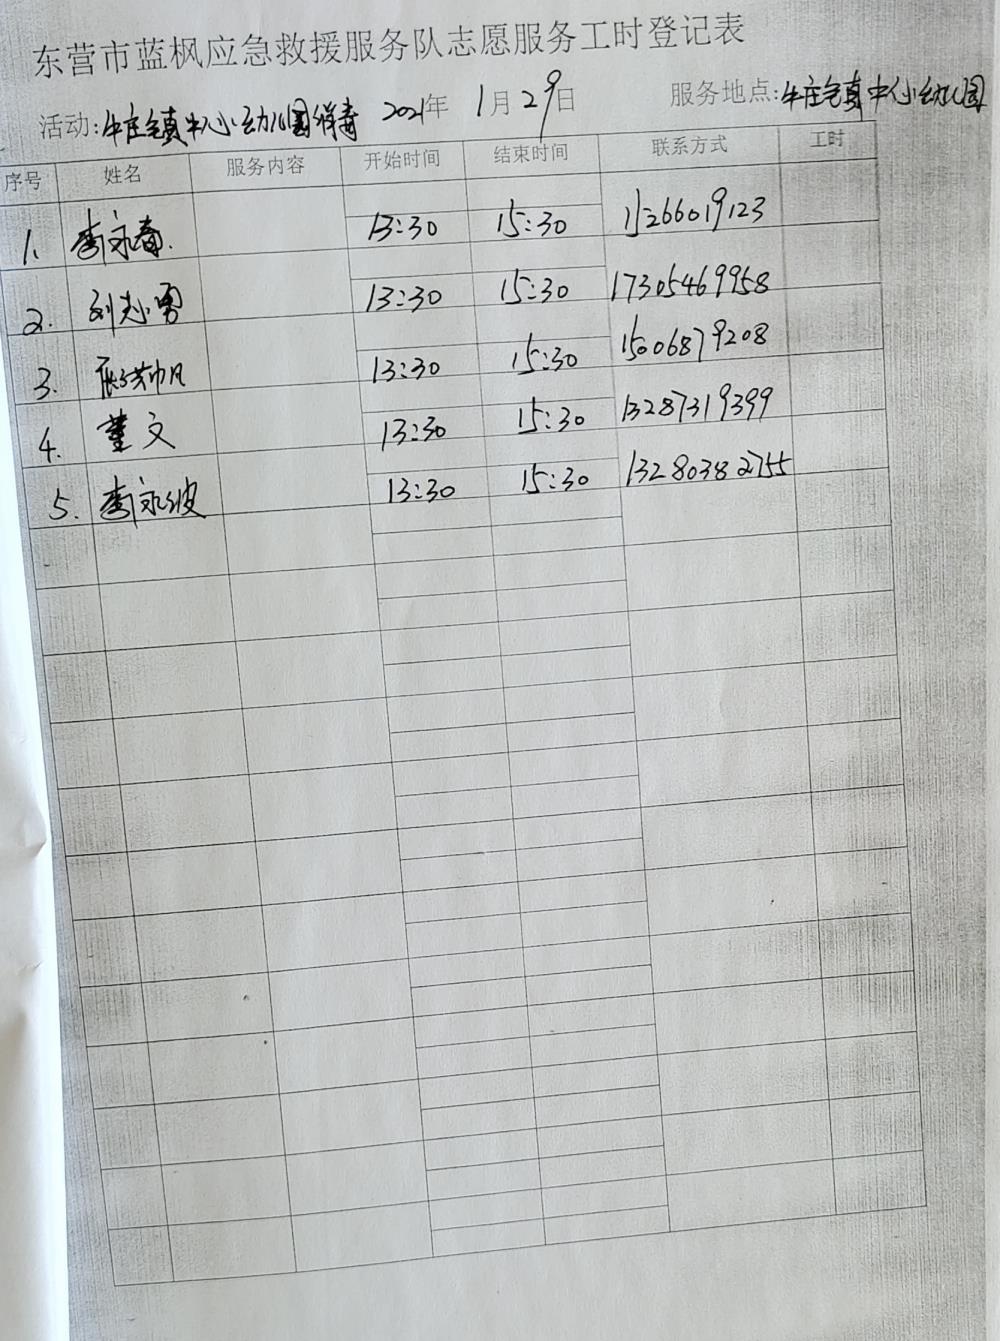 东营市蓝枫应急救援服务队志愿服务工时登记表
活动:牛庄镇中心幼儿园消毒 2021年 1月29日 服务地点:牛庄镇中心幼儿园
序号 姓名 服务内容 开始时间 结束时间 联系方式 工时
1. 李永春. 13:30 15:30 15266019123
2. 刘志勇 13:30 15:30 17305469958
3. 13:30 15:30 15006879208
4. 董文 13:30 15:30 13287319399
5. 李永波 13:30 15:30 13280382755